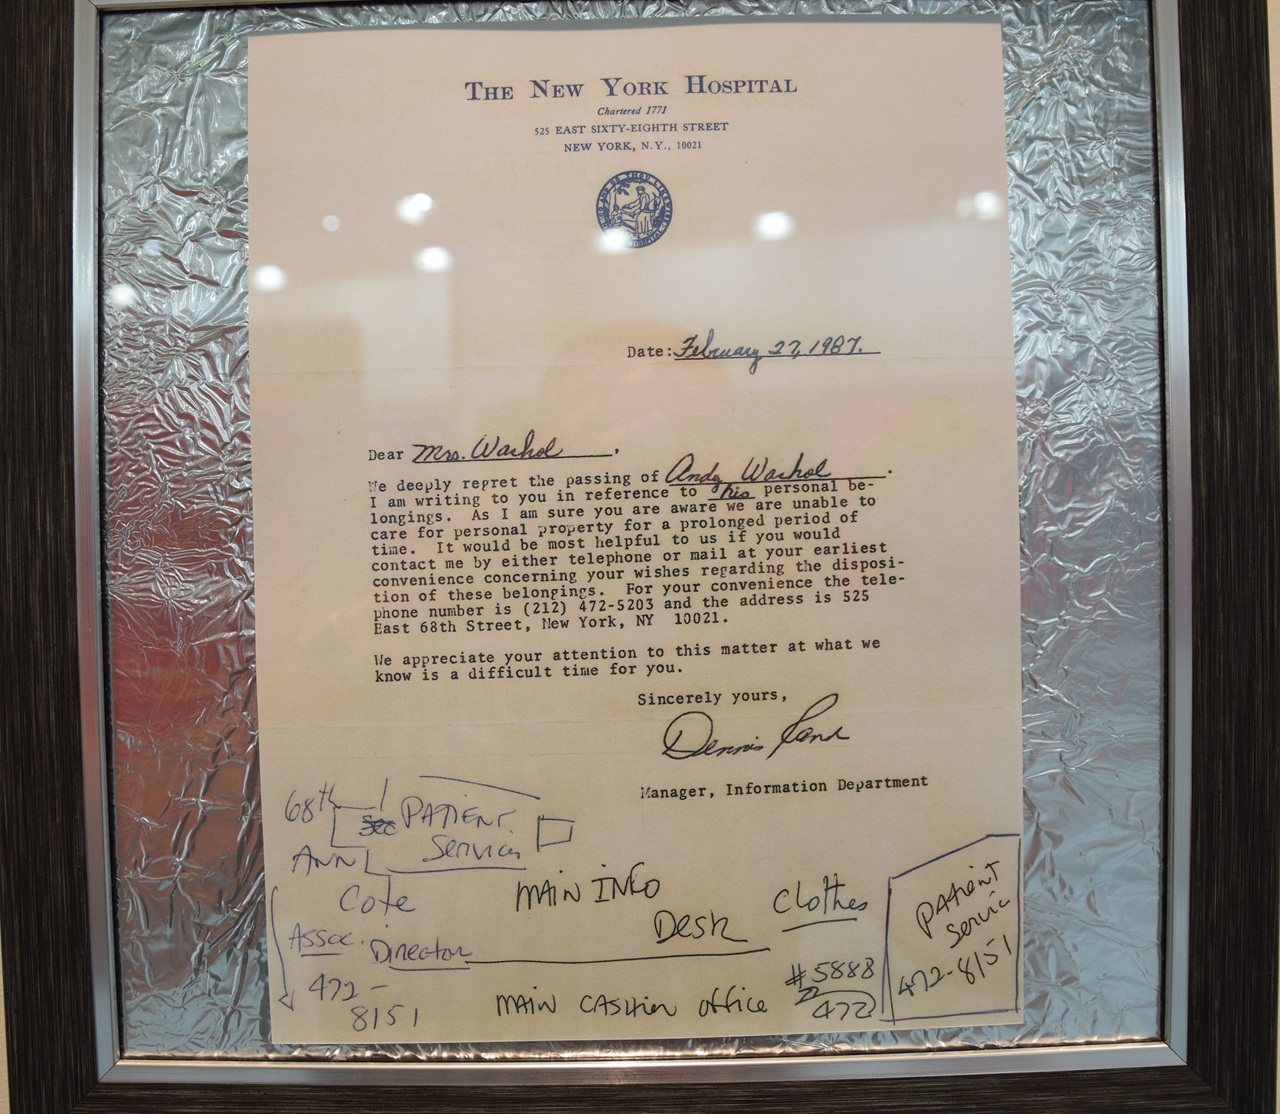 THE NEW YORK HOSPITAL
Chartered 1771
525 EAST SIXTY-EIGHTH STREET
NEW YORK, N.Y., 10021
Date: February 27, 1987.
Dear Mrs. Warhol,
We deeply regret the passing of Andy Warhol.
I am writing to you in reference to his personal be-
longings. As I am sure you are aware we are unable to
care for personal property for a prolonged period of
time. It would be most helpful to us if you would
contact me by either telephone or mail at your earliest
convenience concerning your wishes regarding the disposi-
tion of these belongings. For your convenience the tele-
phone number is (212) 472-5203 and the address is 525
East 68th Street, New York, NY 10021.
We appreciate your attention to this matter at what we
know is a difficult time for you.
Sincerely yours,
Dennis
Manager, Information Department
68th
PATIENT
Services
ANN
Cote
Assoc. Director
472-
8151
MAIN INFO
Desk
Clothes
MAIN CASHier office
#5888
472
PAtient
Servic
472-8151